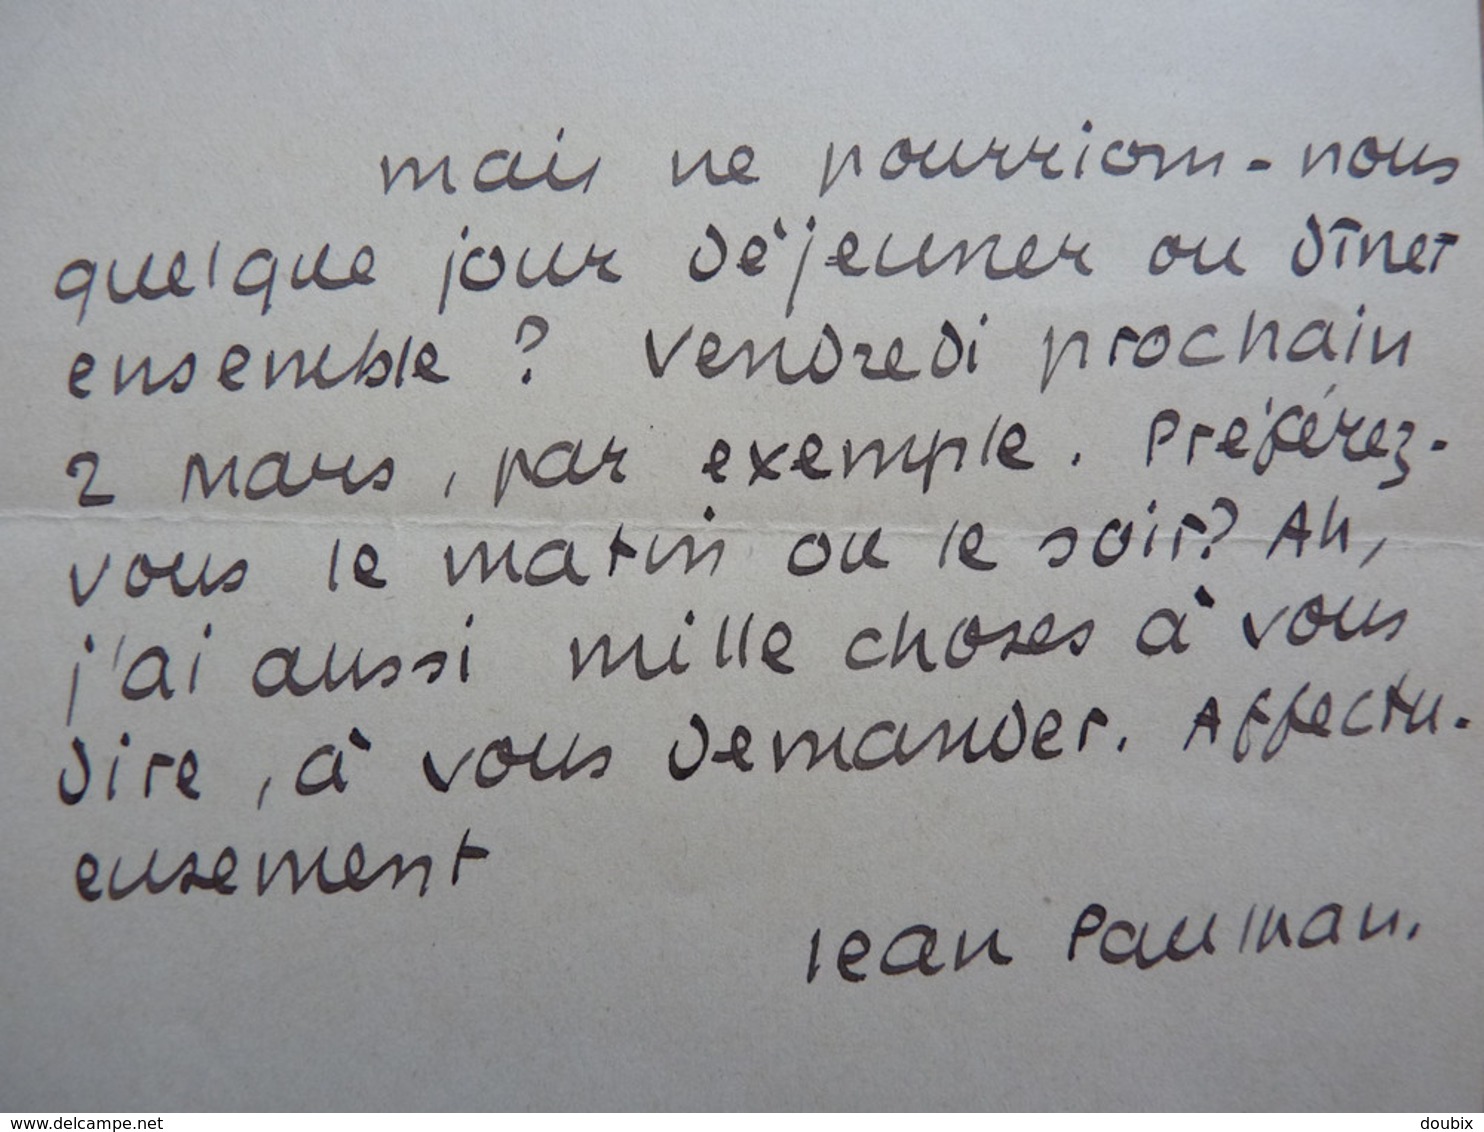 mais ne pourrions-nous
quelque jour déjeuner ou dîner
ensemble ? Vendredi prochain
2 mars, par exemple. Préférez-
vous le matin ou le soir? Ah,
j'ai aussi mille choses à vous
dire, à vous demander. Affectu-
eusement
Jean Paulhan.
www.delcampe.net
doubix